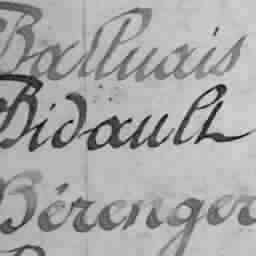 Balluais
Bidault
Bérenger